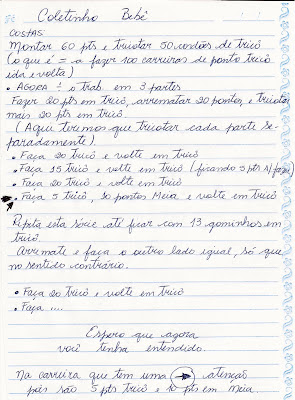 Coletinho Bebê
COSTAS:
Montar 60 pts e tricotar 50 cordões de tricô
(o que é = a fazer 100 carreiras de ponto tricô
ida e volta)
• AGORA ÷ o trab. em 3 partes
Fazer 20 pts em tricô, arrematar 20 pontos, e tricotar
mais 20 pts em tricô.
(Aqui teremos que tricotar cada parte se-
paradamente)
• Faça 20 tricô e volte em tricô
• Faça 15 tricô e volte em tricô (ficando 5 pts s/ fazer)
• Faça 20 tricô e volte em tricô
• Faça 5 tricô, 10 pontos Meia e volte em tricô
Repita esta série até ficar com 13 gominhos em
tricô.
Arremate e faça o outro lado igual, só que
no sentido contrário.
• Faça 20 tricô e volte em tricô
• Faça ....
Espero que agora
você tenha entendido.
Na carreira que tem uma → atenção
pois são 5 pts tricô e 10 pts em meia.